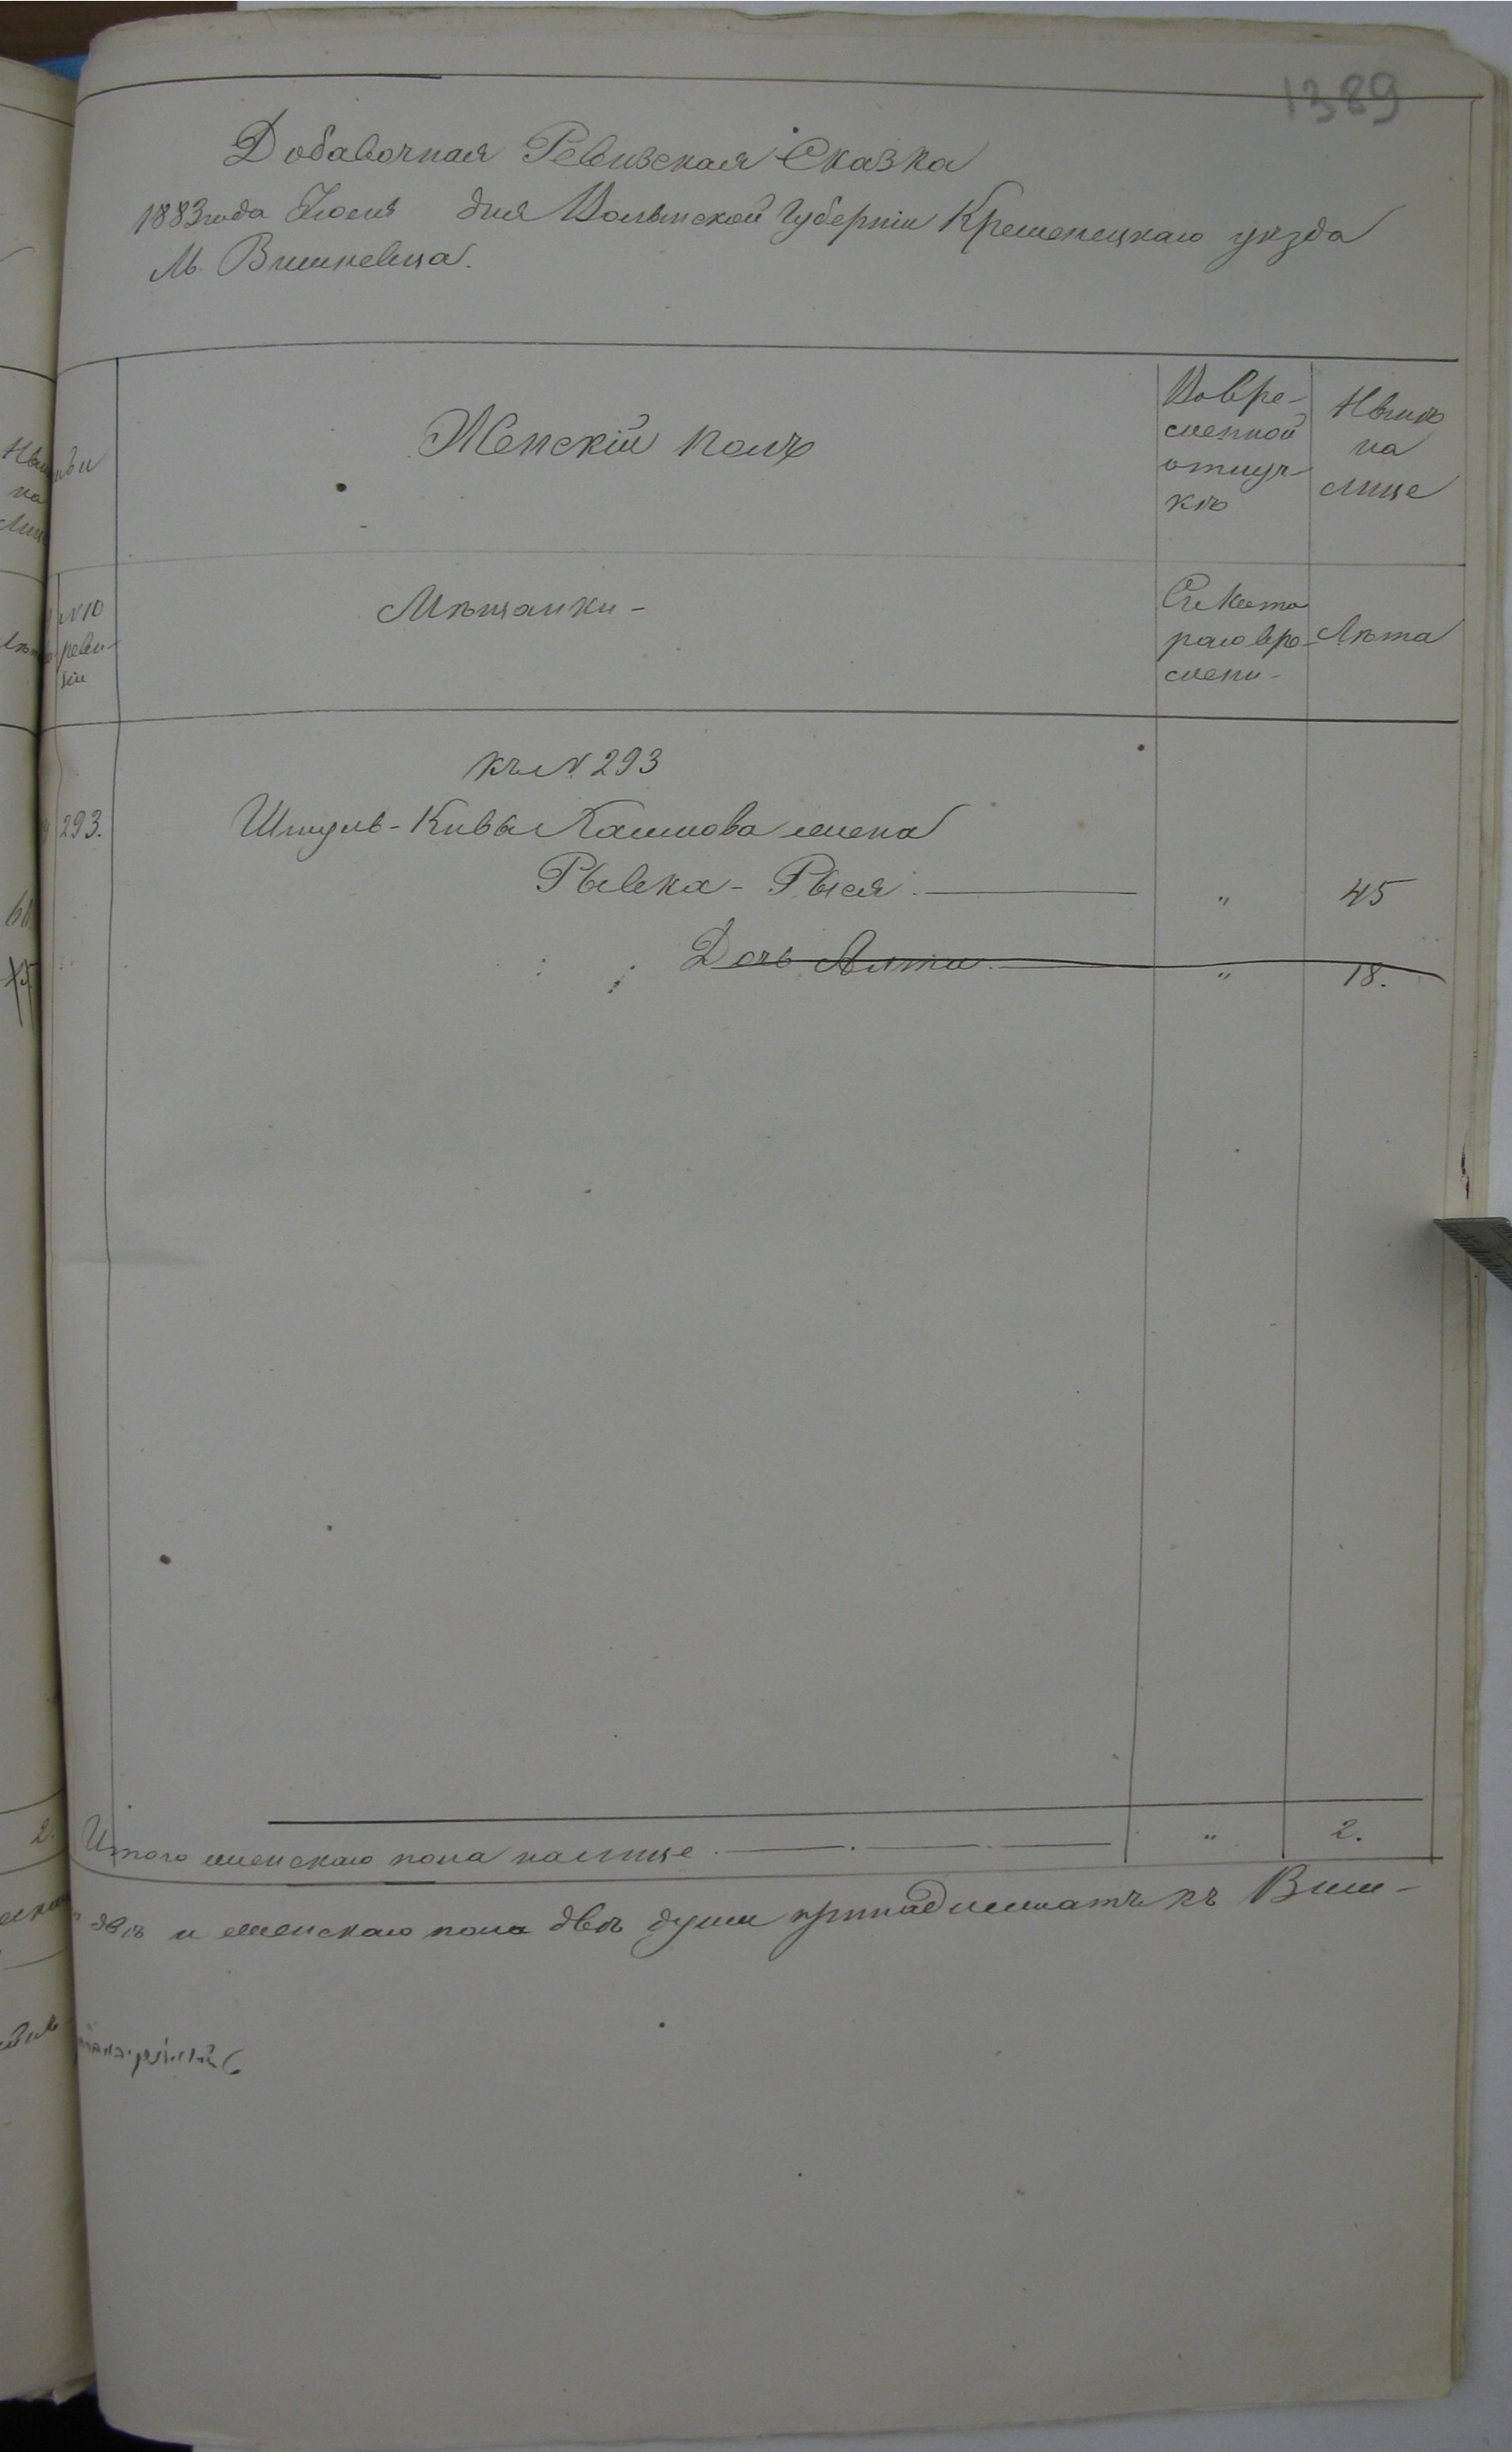 1389
Добавочная Ревизская Сказка
1883 года Июля дня Волынской Губерніи Кременецкаго уѣзда
М. Вишневца.
Женскій полъ
Во вре-
менной
отлуч-
кѣ
Нынѣ
на
лице
№ 10
реви-
зіи
Мѣщанки -
Съ кото
раго вре-
мени -
Лѣта
къ № 293
293.
Штуль - Кивы Хаимова жена
Рывка - Рыся. " 45
Дочь Алта " 18.
Итого женскаго пола налице " 2.
и женскаго пола двѣ души принадлежатъ къ Виш-